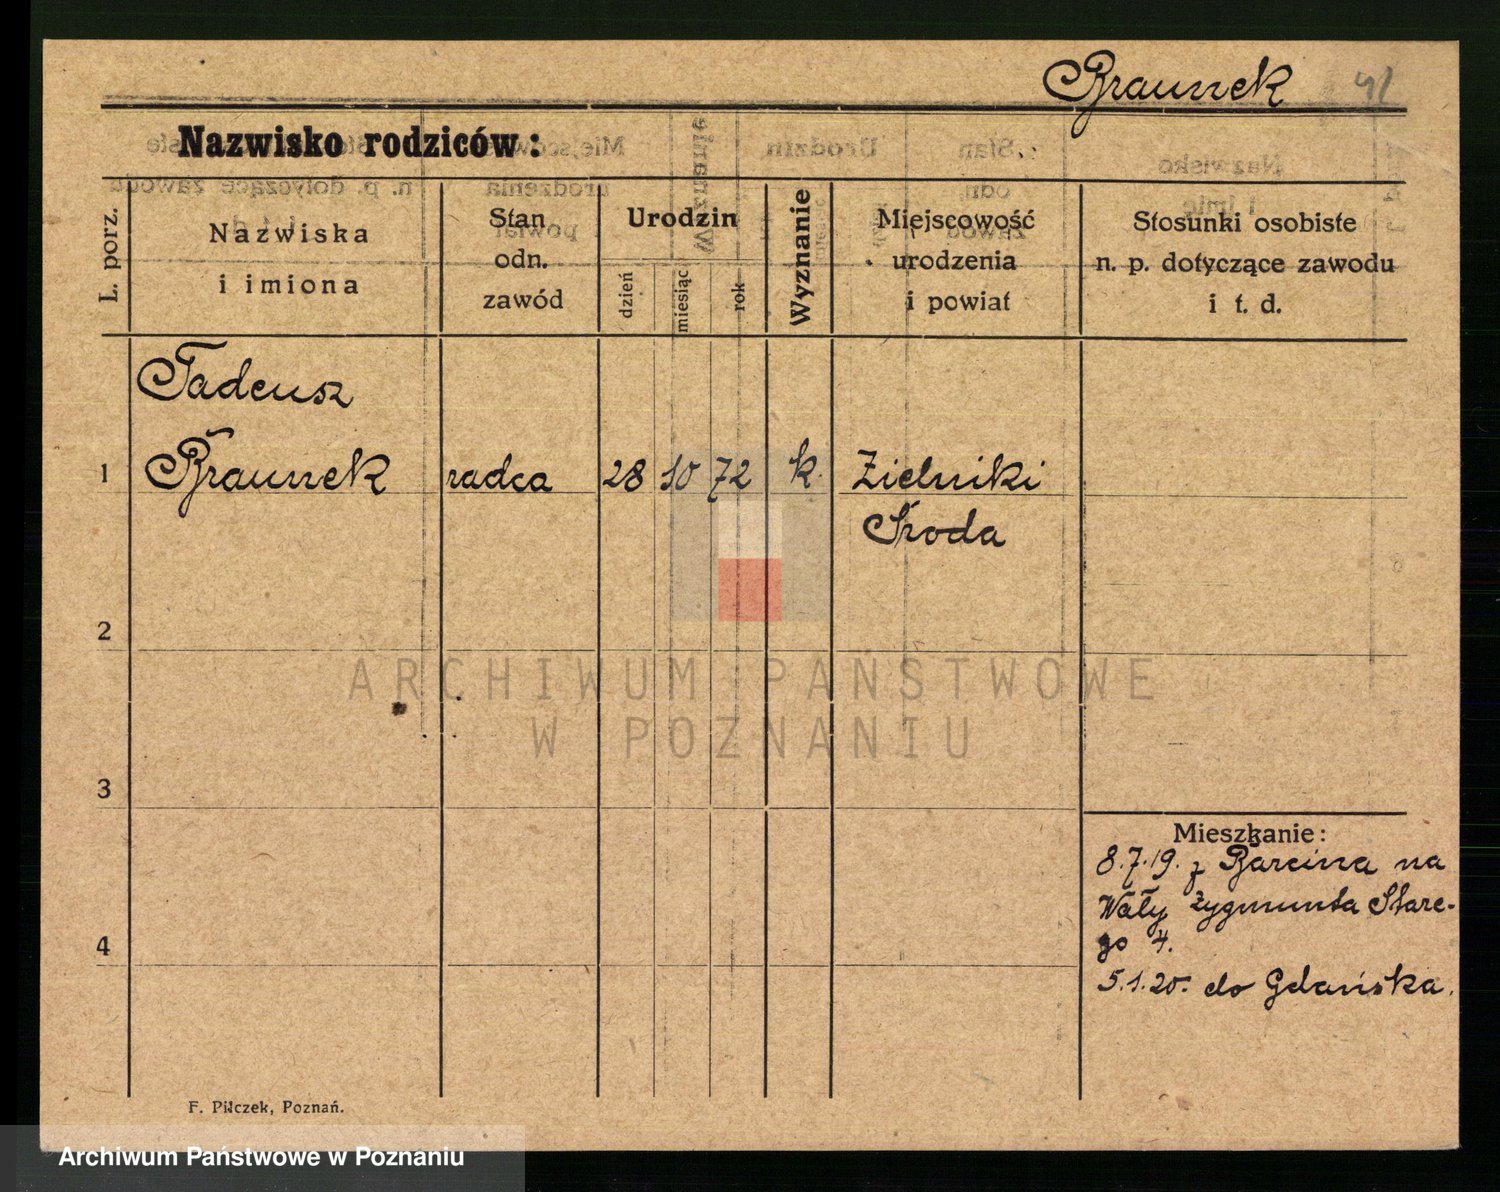 Braunek 41
Nazwisko rodziców:
L. porz.
Nazwiska
i imiona
Stan
odn.
zawód
Urodzin
dzień
miesiąc
rok
Wyznanie
Miejscowość
urodzenia
i powiat
Stosunki osobiste
n. p. dotyczące zawodu
i t. d.
Tadeusz
1 Braunek radca 28 10 72 k. Zielniki
Środa
2
3
4
Mieszkanie:
8.7.19. z Barcina na
Wały Zygmunta Stare-
go 4.
5.1.20. do Gdańska.
F. Pilczek, Poznań.
ARCHIWUM PAŃSTWOWE
W POZNANIU
Archiwum Państwowe w Poznaniu